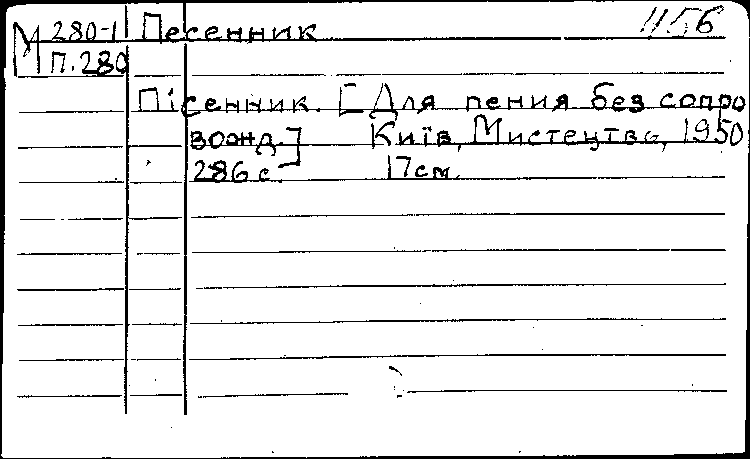 М 280-1 Песенник 1156
П.280
Пісенник. [Для пения без сопро
вожд.] Київ, Мистецтво, 1950
286 с. 17см.